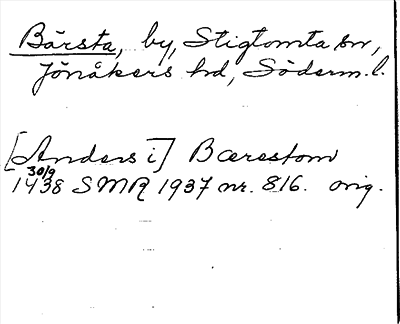 Bärsta, by, Stigtomta sn,
Jönåkers hd, Söderm. l.
[Anders i] Bærestom
1438 30/9 SMR 1937 nr. 816. orig.